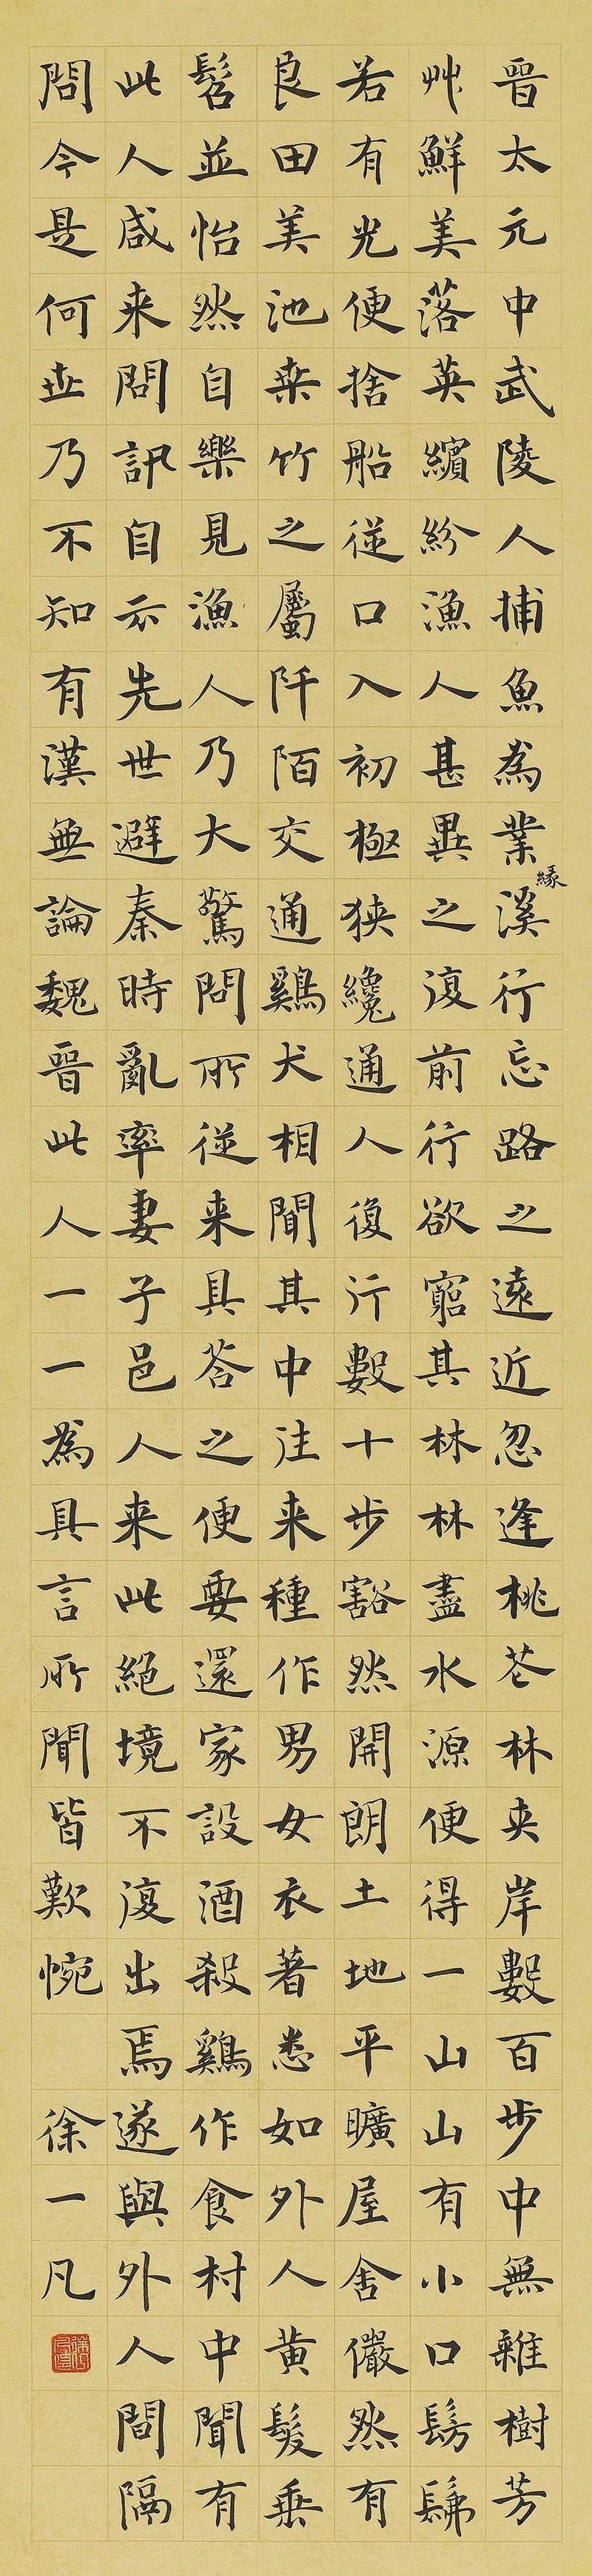 晉太元中武陵人捕魚為業緣溪行忘路之遠近忽逢桃花林夾岸數百步中無雜樹芳
艸鮮美落英繽紛漁人甚異之復前行欲窮其林林盡水源便得一山山有小口髣髴
若有光便捨船從口入初極狹纔通人復行數十步豁然開朗土地平曠屋舍儼然有
良田美池桒竹之屬阡陌交通鷄犬相聞其中往来種作男女衣著悉如外人黃髮垂
髫並怡然自樂見漁人乃大驚問所從来具荅之便要還家設酒殺鷄作食村中聞有
此人咸来問訊自云先世避秦時亂率妻子邑人来此絕境不復出焉遂與外人間隔
問今是何世乃不知有漢無論魏晉此人一一為具言所聞皆歎惋
徐一凡